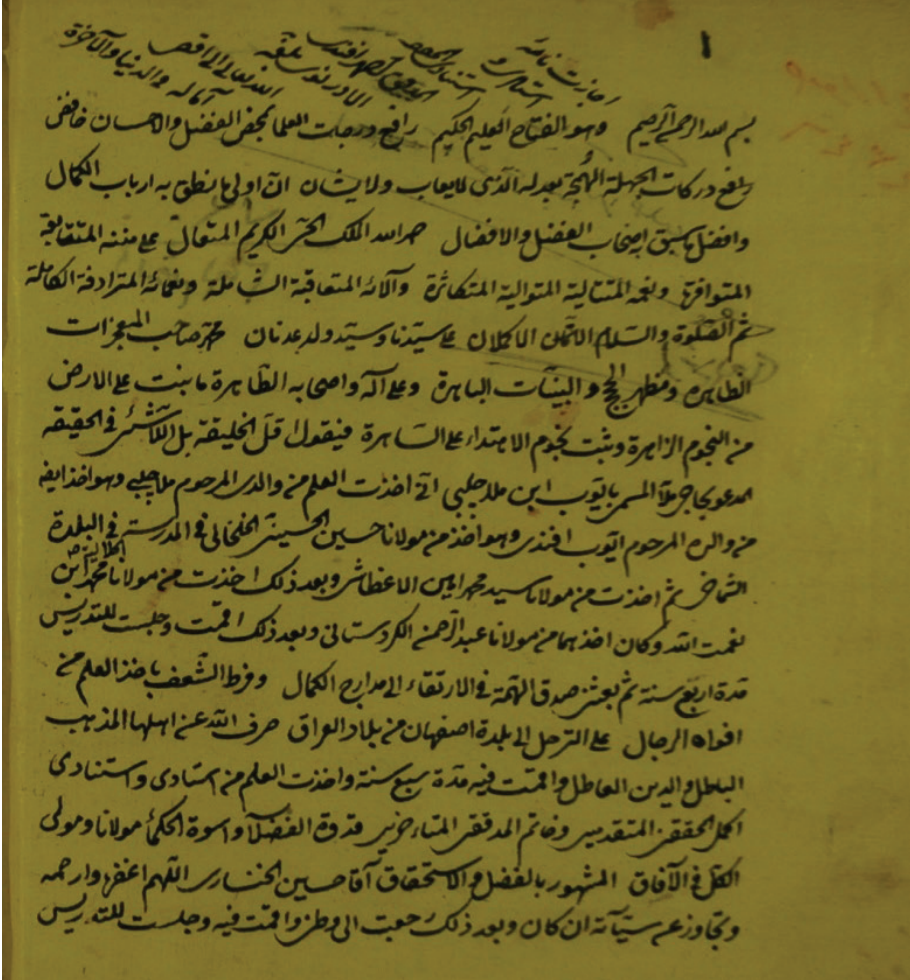 ١
اجازت نامهٔ
استادی و
استنادی
الله تعالی الی اقصی
آماله فی الدنیا والآخرة
بسم الله الرحمن الرحیم وهو الفتاح العلیم الحکیم رافع درجات العلما بمحض الفضل والاحسان خافض
درکات الجهلة بعدله الذی لا یعاب ولا یشان ان اولی ما نطق به ارباب الکمال
وافضل ما سبق اصحاب الفضل والافضال حمد الله الملک الکریم المتعال علی مننه المتعاقبة
المتوافرة ونعمه المتتالیة المتوالیة المتکاثرة وآلائه المتعاقبة الشاملة ونعمائه المترادفة الکاملة
ثم الصلوة والسلام الاتمان الاکملان علی سیدنا وسید ولد عدنان محمد صاحب المعجزات
الظاهرة ومظهر الحجج والبینات الباهرة وعلی آله واصحابه الطاهرة ما نبت علی الارض
من النجوم الزاهرة وثبت نجوم الاهتداء علی الساهرة فیقول اقل الخلیقة بل اللاشئ فی الحقیقه
المدعو بحاجی ملا المسمی بایوب ابن ملا چلبی انی اخذت العلم من والدی المرحوم ملا چلبی وهو اخذ ایضا
من والده المرحوم ایوب افندی وهو اخذ من مولانا حسین الحسینی الخلخالی فی المدرسة فی البلدة
الشماخی ثم اخذت من مولانا سید محمد امین وبعد ذلک اخذت من مولانا محمد ابن
نعمت الله وکان اخذهما من مولانا عبد الرحمن الکردستانی وبعد ذلک اقمت وجلست للتدریس
مدة اربع سنة ثم بعثنی صدق الهمة فی الارتقاء الی مدارج الکمال وفرط الشعف باخذ العلم من
افواه الرجال علی الترحل الی بلدة اصفهان من بلاد العراق صرف الله عن اهلها المذهب
الباطل والدین العاطل واقمت فیه مدة سبع سنة واخذت العلم من استادی واستنادی
اکمل المحققین المتقدمین وخاتم المدققین المتاخرین قدوة الفضلآ واسوة الحکمأ مولانا ومولی
الکل فی الآفاق المشهور بالفضل والاستحقاق آقا حسین الخنساری اللهم اغفر وارحمه
وتجاوز عن سیئآته ان کان وبعد ذلک رجعت الی وطنی واقمت فیه وجلست للتدریس